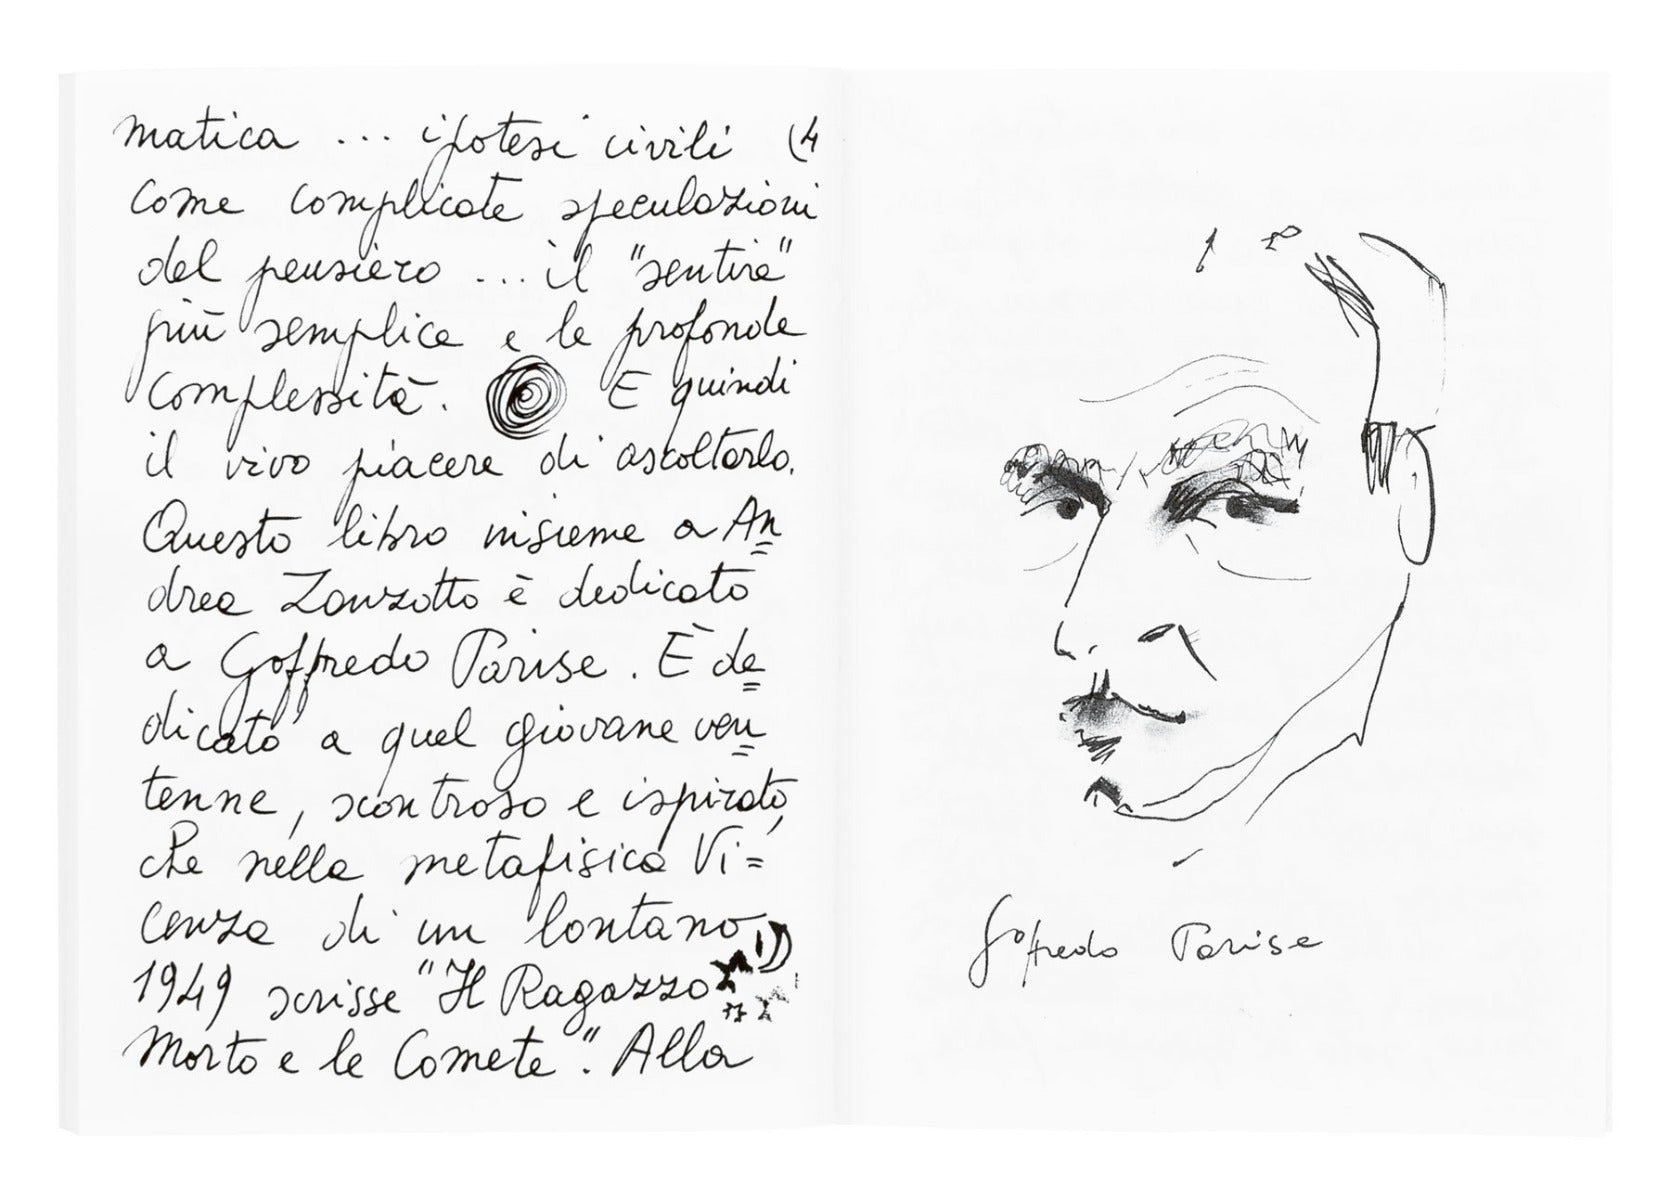 matica ... ipotesi civili (4
come complicate speculazioni
del pensiero ... il "sentire"
più semplice e le profonde
complessità. E quindi
il vivo piacere di ascoltarlo.
Questo libro insieme a An=
drea Zanzotto è dedicato
a Goffredo Parise. È de=
dicato a quel giovane ven=
tenne, scontroso e ispirato,
che nella metafisica Vi=
cenza di un lontano
1949 scrisse "Il Ragazzo
Morto e le Comete". Alla
Goffredo Parise